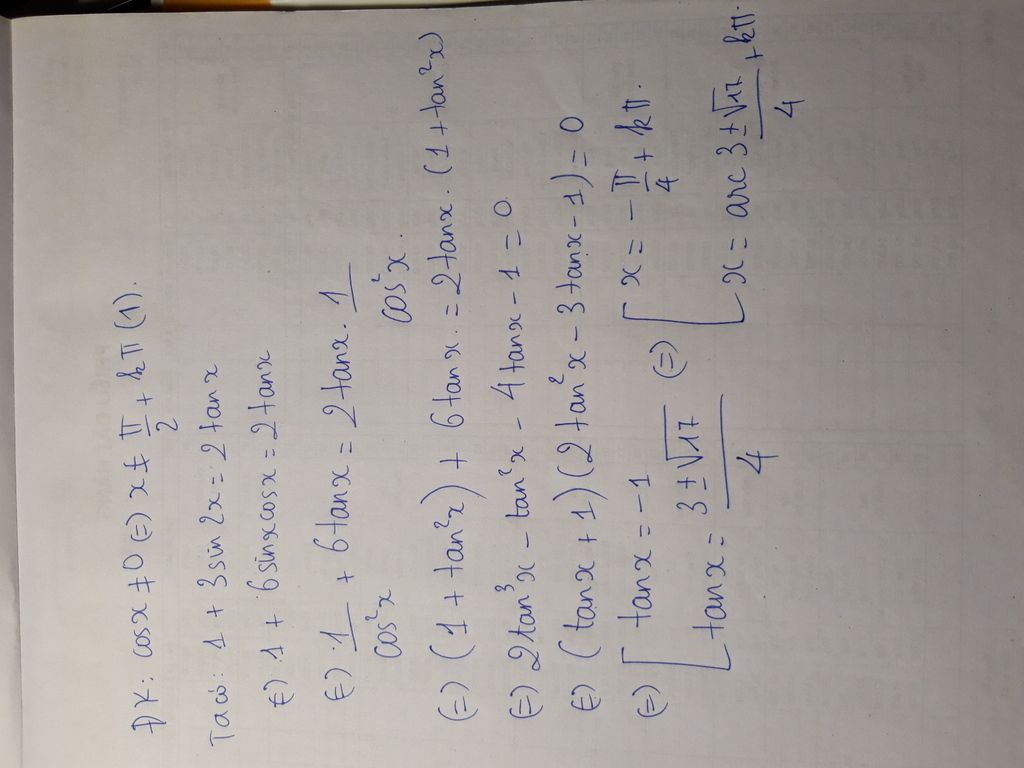 ĐK: cosx ≠ 0 (=) x ≠ π/2 + kπ (1).
Ta có: 1 + 3sin2x = 2tanx
(=) 1 + 6sinxcosx = 2tanx
(=) 1/cos²x + 6tanx = 2tanx. 1/cos²x.
(=) (1 + tan²x) + 6tanx = 2tanx. (1 + tan²x)
(=) 2tan³x - tan²x - 4tanx - 1 = 0.
(=) (tanx + 1)(2tan²x - 3tanx - 1) = 0
(=) [ tanx = -1 (=) [ x = -π/4 + kπ.
tanx = (3 ± √17)/4 x = arc (3 ± √17)/4 + kπ.